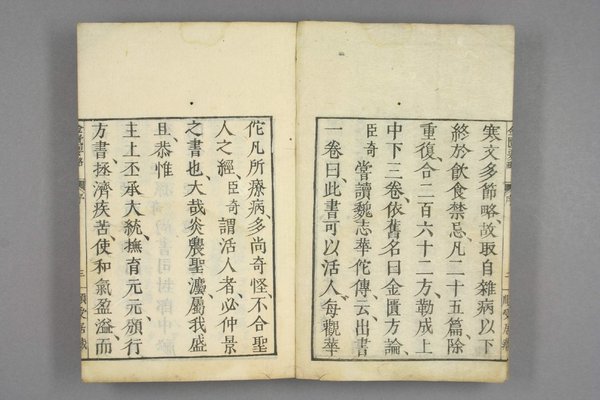 寒文多節略、故取自雜病以下
終於飲食禁忌、凡二十五篇、除
重復合二百六十二方、勒成上
中下三卷、依舊名曰金匱方論、
臣奇嘗讀魏志華佗傳云、出書
一卷曰、此書可以活人、每觀華
佗凡所療病、多尚奇怪、不合聖
人之經、臣奇謂活人者、必仲景
之書也、大哉炎農聖灋、屬我盛
旦、恭惟
主上丕承大統、撫育元元、頒行
方書、拯濟疾苦、使和氣盈溢、而